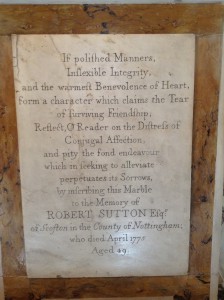 If polished Manners,
Inflexible Integrity,
and the warmest Benevolence of Heart,
form a character which claims the Tear
of surviving Friendship;
Reflect, O Reader on the Distress of
Conjugal Affection,
and pity the fond endeavour
which in seeking to alleviate
perpetuates its Sorrows,
by inscribing this Marble
to the Memory of
ROBERT SUTTON Esqr.
of Scofton in the County of Nottingham;
who died April 1775
Aged 49